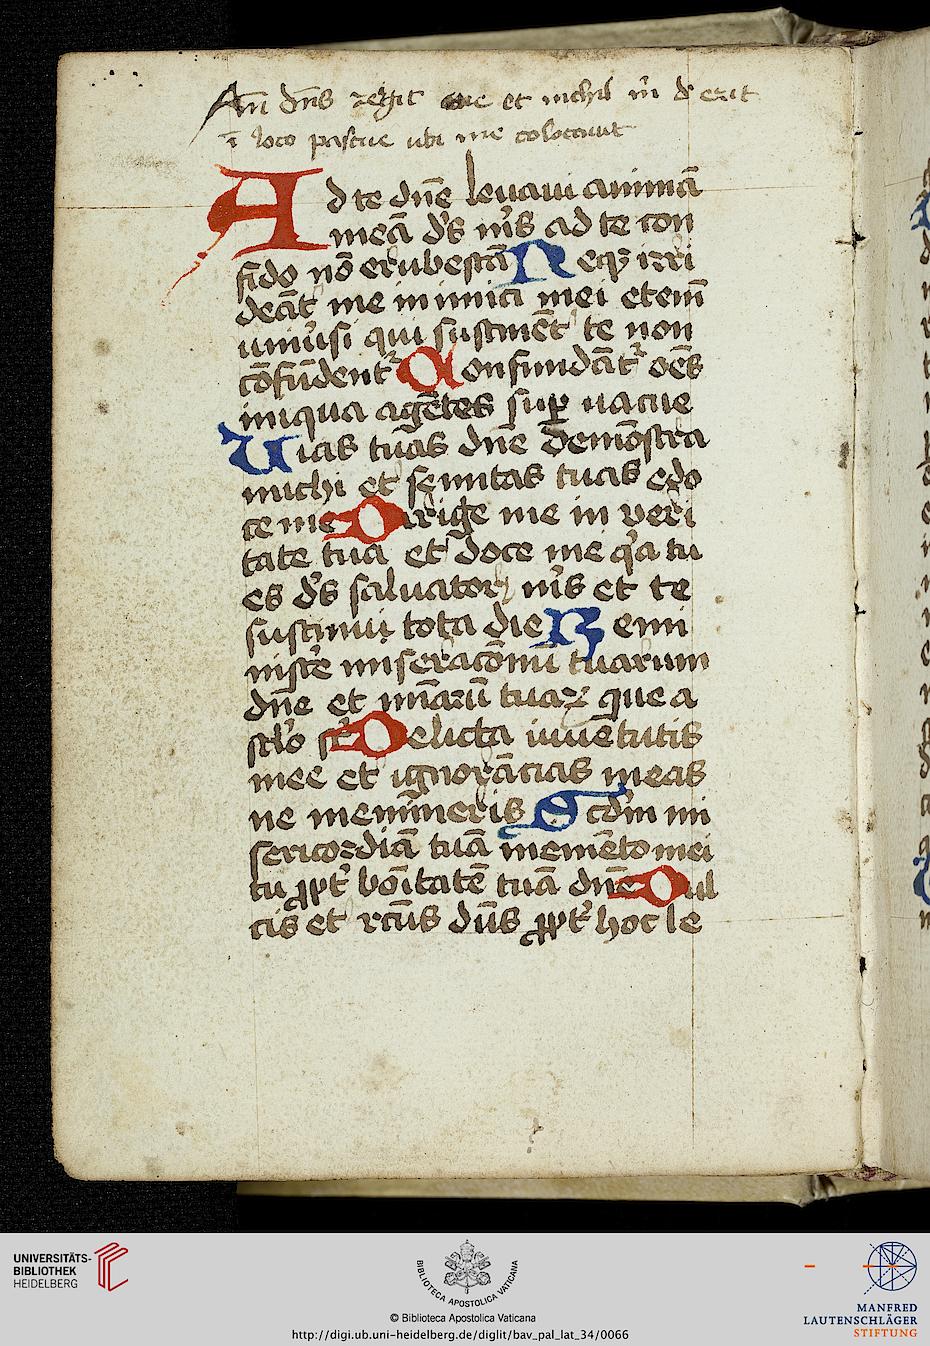 An̄ dn̄s regit me et nichil m̄ d erit
ī loco pascue ubi me colocauit
Ad te dn̄e leuaui animā
meā ds̄ ms̄ ad te con
fido nō erubescā Neqꝫ irri
deāt me inimici mei etem̄
uniu̾si qui sustinēt te non
cōfūdentᷣ Confundātᷣ oēs
iniqua agētes suꝑ uacue
Uias tuas dn̄e demōstra
michi et semitas tuas edo
ce me Dirige me in veri
tate tua et doce me qͥa tu
es ds̄ saluator ms̄ et te
sustinui tota die Remi
nisce̾ miseracōnū tuarum
dn̄e et mīaꝝū tuaꝝ que a
sclo st̄ Delicta iuuētutis
mee et ignorācias meas
ne memineris Scd̄m mi
sericordiā tuā memēto mei
tu ꝓpt̾ bōitatē tuā dn̄e Dul
cis et rcūs dn̄s ꝓpt̾ hoc le
UNIVERSITÄTS-
BIBLIOTHEK
HEIDELBERG
BIBLIOTECA APOSTOLICA VATICANA
© Biblioteca Apostolica Vaticana
http://digi.ub.uni-heidelberg.de/diglit/bav_pal_lat_34/0066
MANFRED
LAUTENSCHLÄGER
STIFTUNG